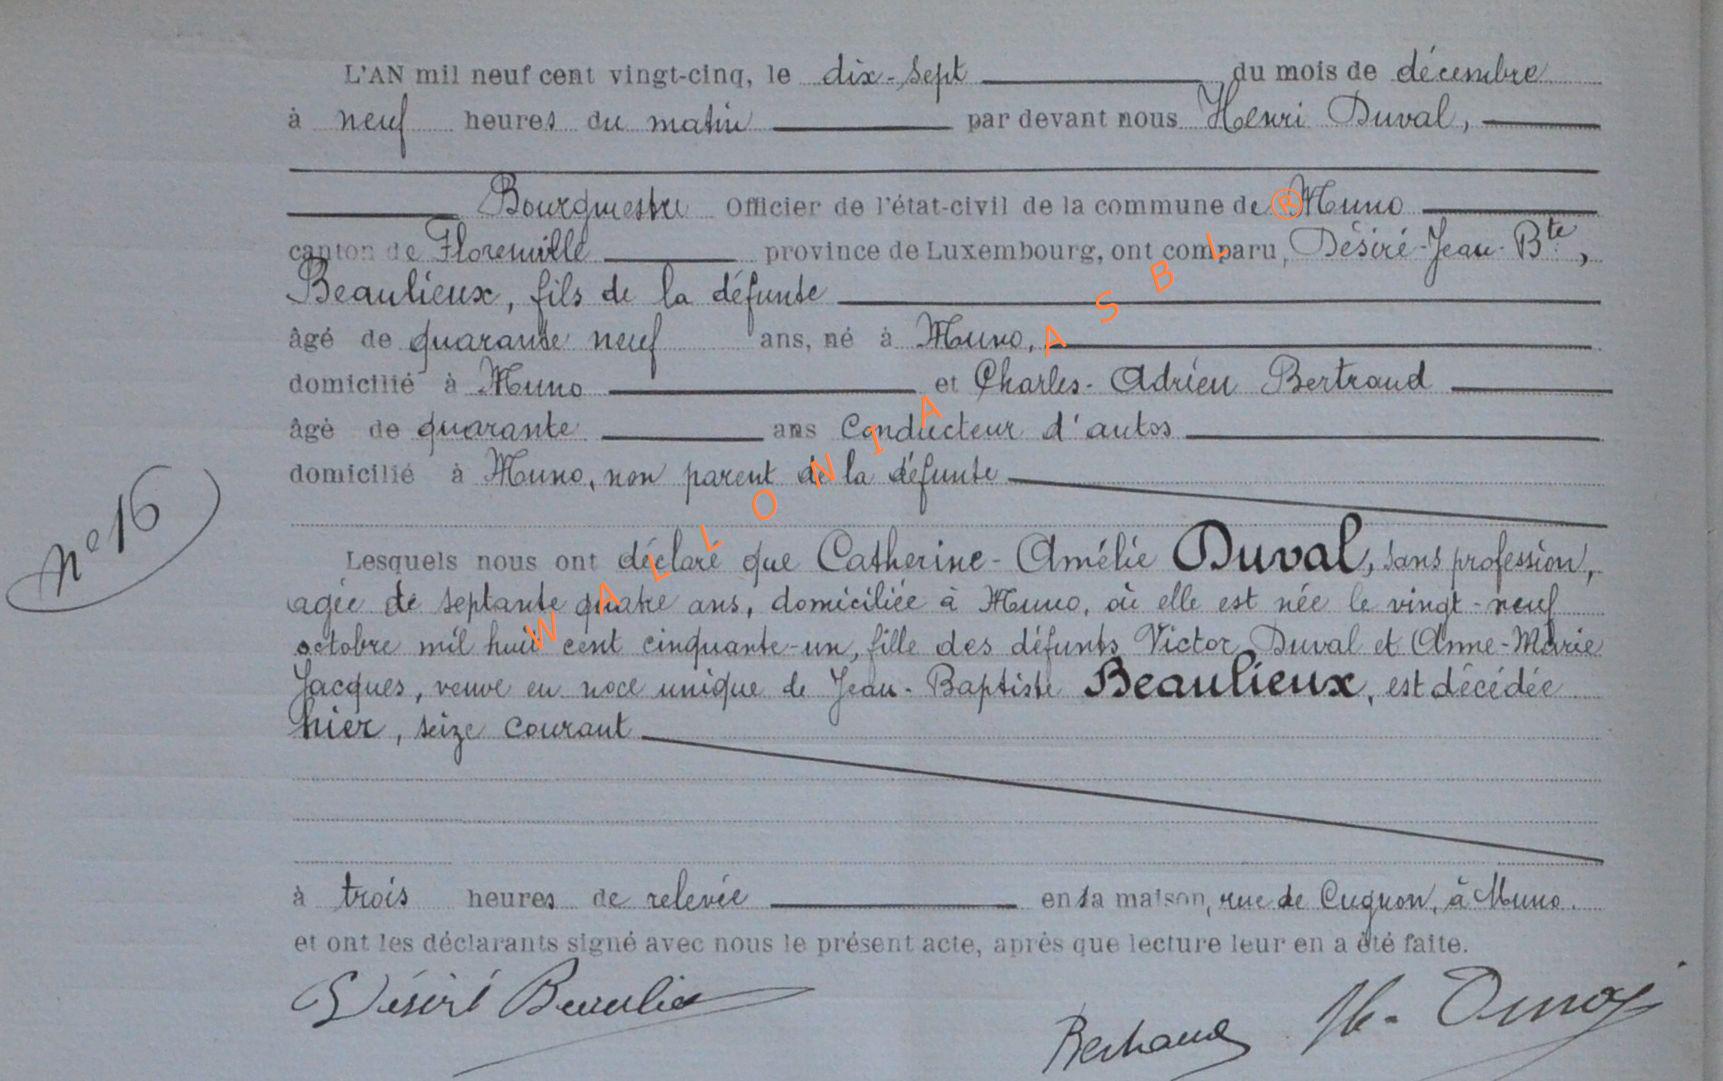 L'AN mil neuf cent vingt-cinq, le dix-sept du mois de décembre
à neuf heures du matin par devant nous Henri Duval,
Bourgmestre Officier de l'état-civil de la commune de Muno
canton de Florenville province de Luxembourg, ont comparu, Désiré-Jean-Bte,
Beaulieux, fils de la défunte
âgé de quarante neuf ans, né à Muno,
domicilié à Muno et Charles-Adrien Bertrand
âgé de quarante ans Conducteur d'autos
domicilié à Muno, non parent de la défunte
N° 16
Lesquels nous ont déclaré que Catherine-Amélie Duval, sans profession,
agée de septante quatre ans, domiciliée à Muno, où elle est née le vingt-neuf
octobre mil huit cent cinquante-un, fille des défunts Victor Duval et Anne-Marie
Jacques, veuve en noce unique de Jean-Baptiste Beaulieux, est décédée
hier, seize courant
à trois heures de relevée en sa maison, rue de Cugnon, à Muno.
et ont les déclarants signé avec nous le présent acte, après que lecture leur en a été faite.
Désiré Beaulieux
Bertrand H. Duval
WALLONIA ASBL ®